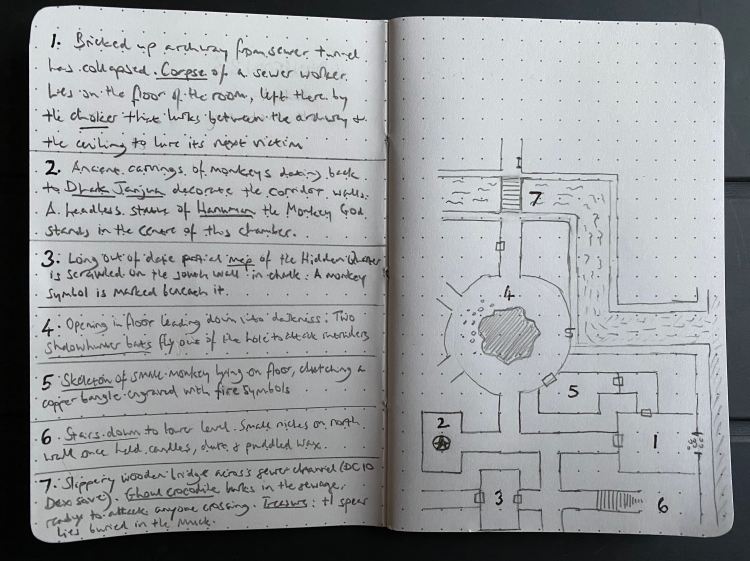 1. Bricked up archway from sewer tunnel
has collapsed. Corpse of a sewer worker
lies on the floor of the room, left there by
the choker that lurks between the archway &
the ceiling to lure its next victim
2. Ancient carvings of monkeys dating back
to Dhak Janjua decorate the corridor walls.
A headless statue of Hanuman the Monkey God
stands in the centre of this chamber.
3. Long out of date partial map of the Hidden Quarter
is scrawled on the south wall in chalk. A monkey
symbol is marked beneath it.
4. Opening in floor leading down into darkness. Two
Shadowhunter bats fly out of the hole to attack intruders
5 Skeleton of small monkey lying on floor, clutching a
copper bangle engraved with fire symbols
6. Stairs down to lower level. Small niches on north
wall once held candles, dust & puddled wax.
7. Slippery wooden bridge across sewer channel (DC 10
Dex save). Ghoul crocodile lurks in the sewage,
ready to attack anyone crossing. Treasure: +1 spear
lies buried in the muck.
I
7
4
S
5
2
1
3
6